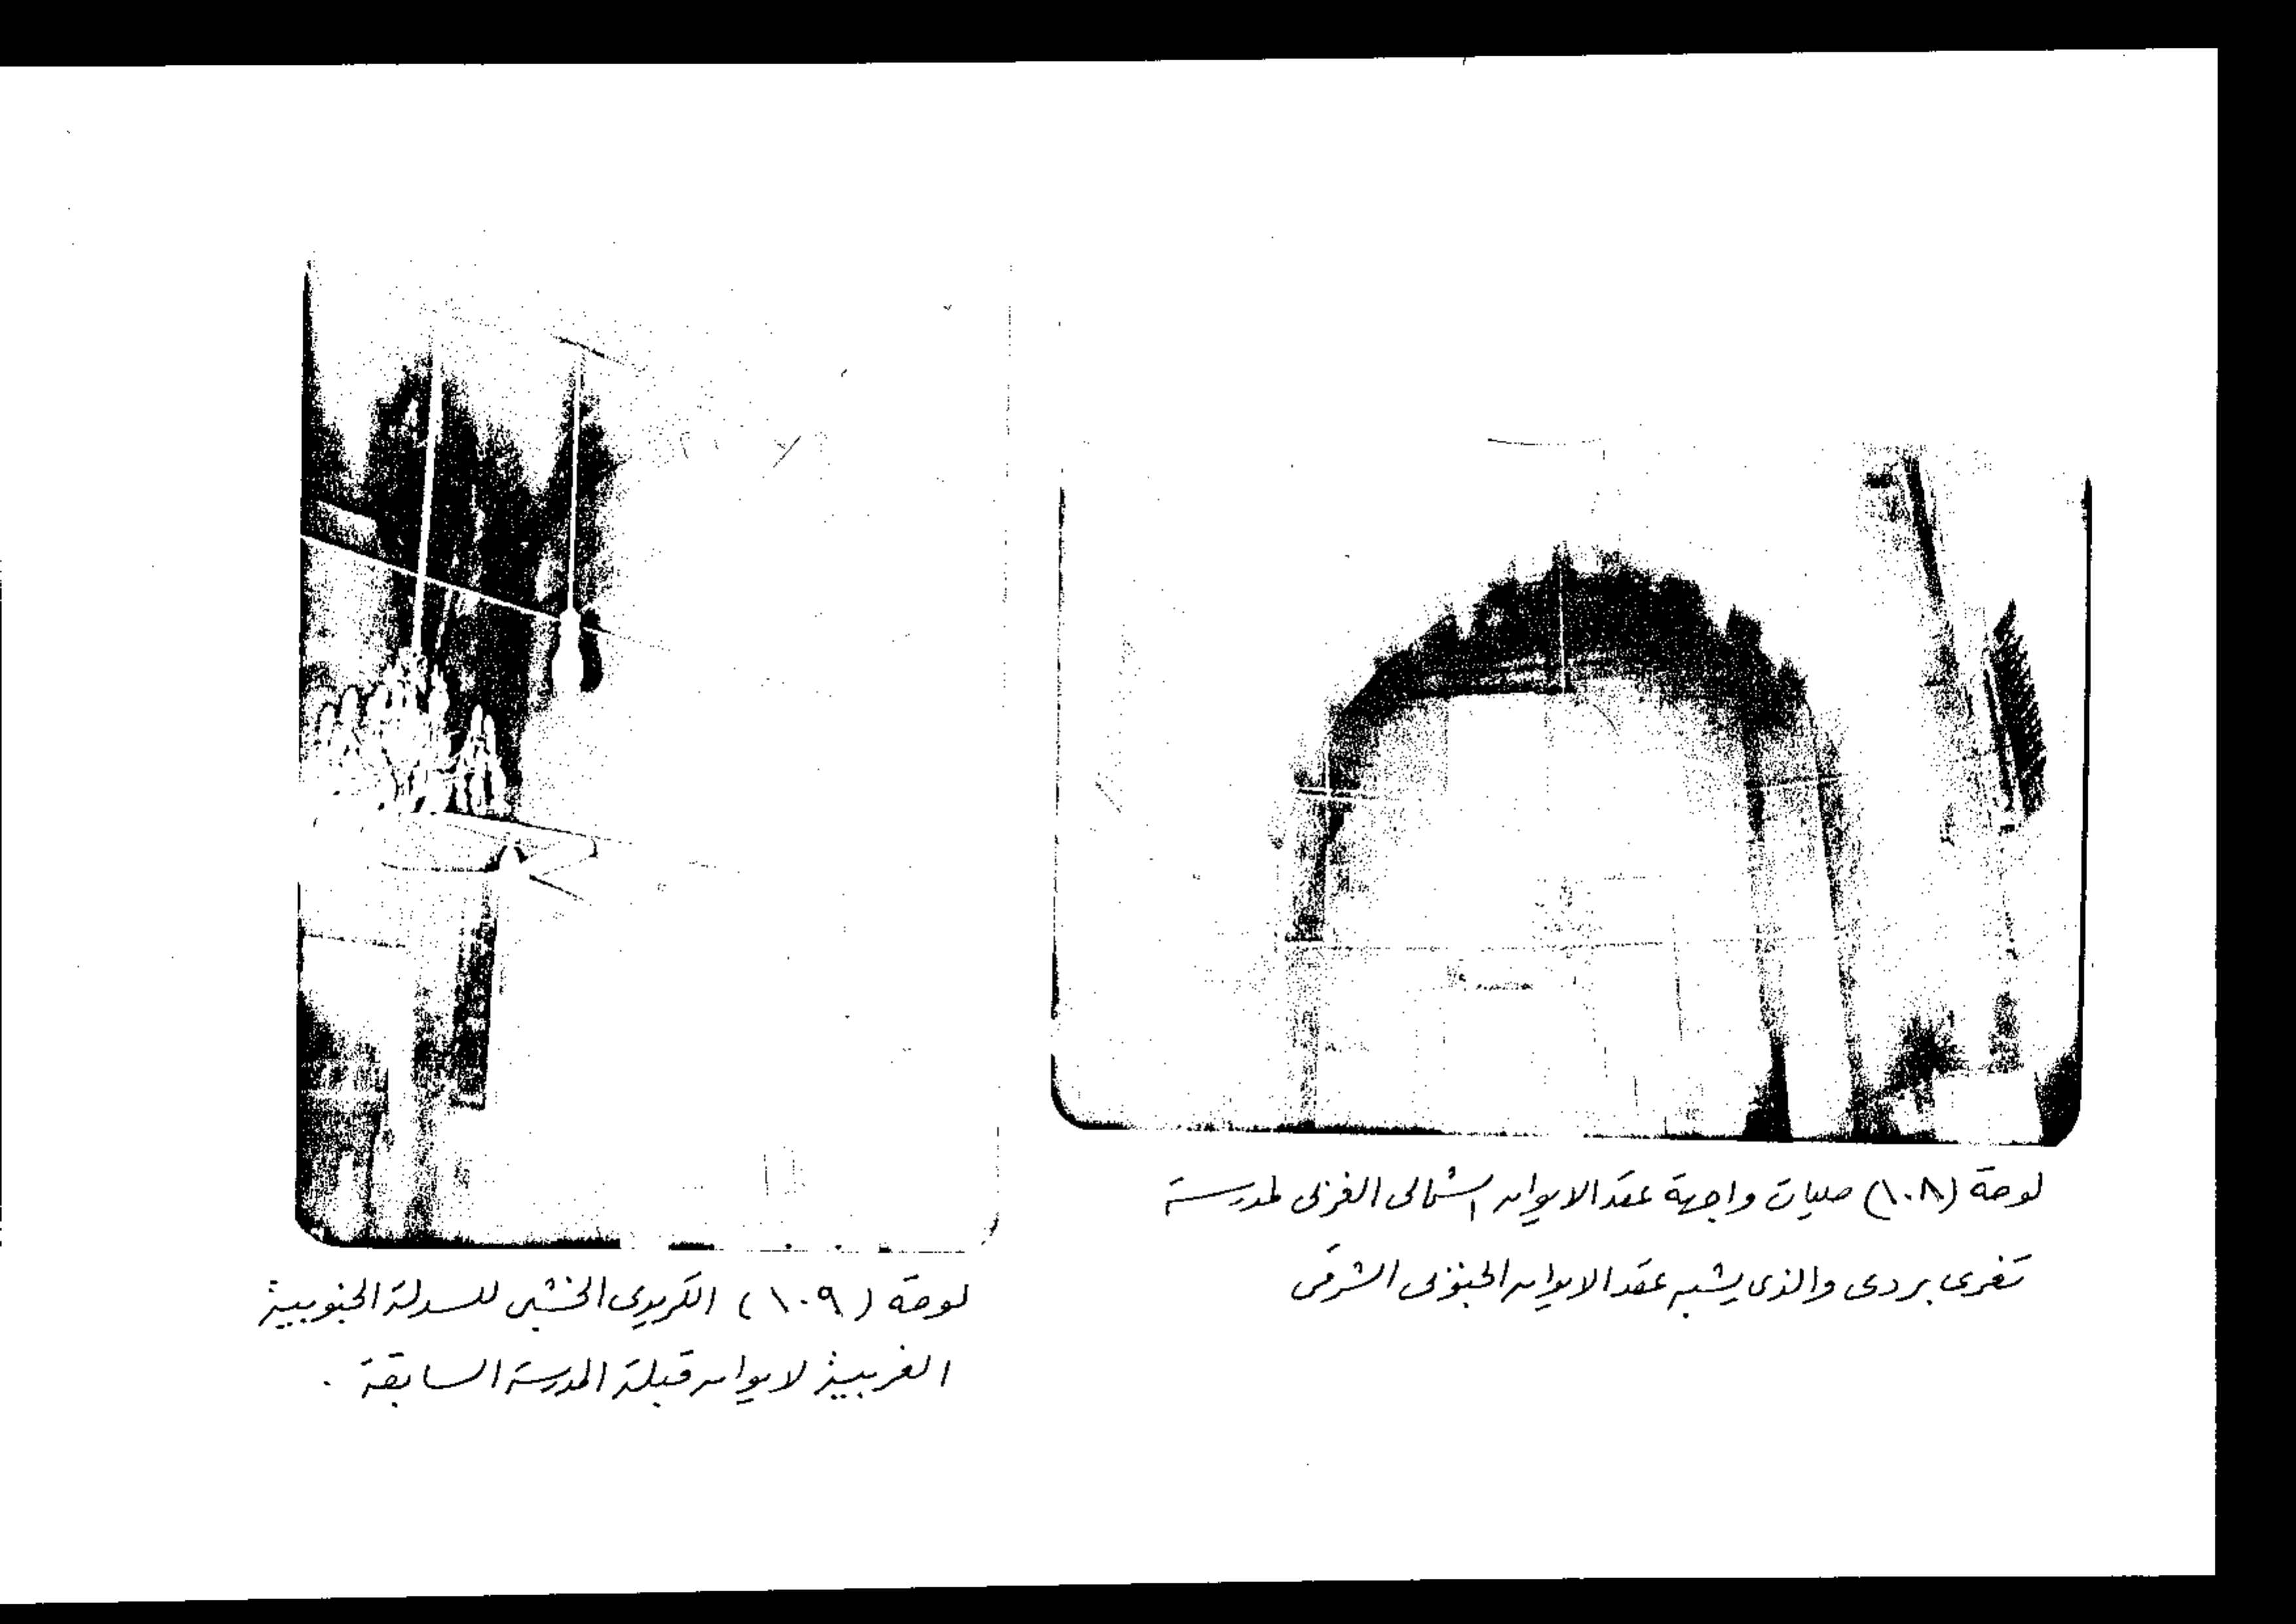 لوحة (١٠٨) حليات واجهة عقد الايوان الشمالى الغربى لمدرسة
تغرى بردى والذى يشبه عقد الايوان الجنوبى الشرقى
لوحة (١٠٩) الكريدى الخشبى للسدلة الجنوبية
الغربية لايوان قبلة المدرسة السابقة .